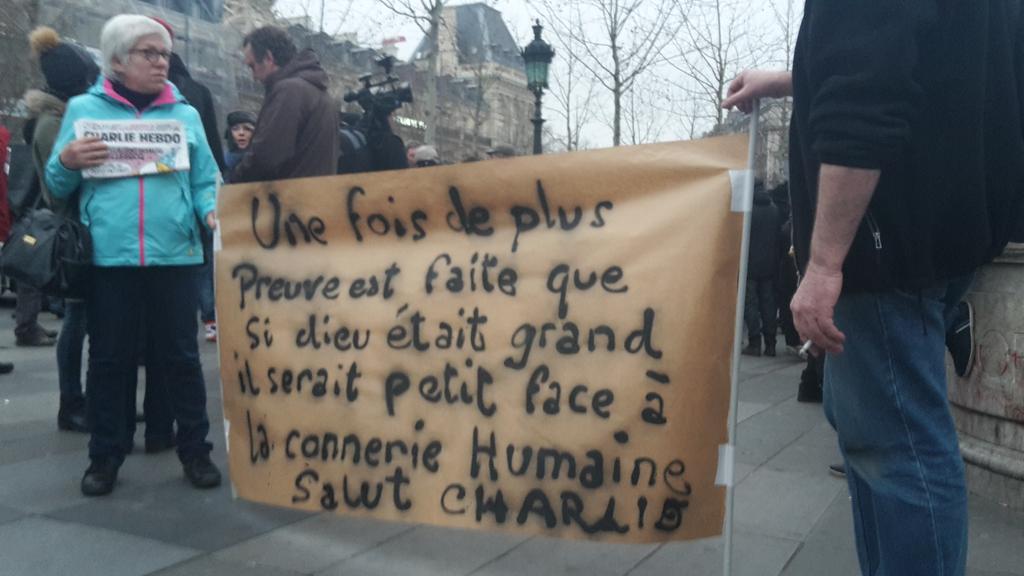 CHARLIE HEBDO
Une fois de plus
Preuve est faite que
si dieu était grand
il serait petit face à
la connerie Humaine
Salut CHARLIE